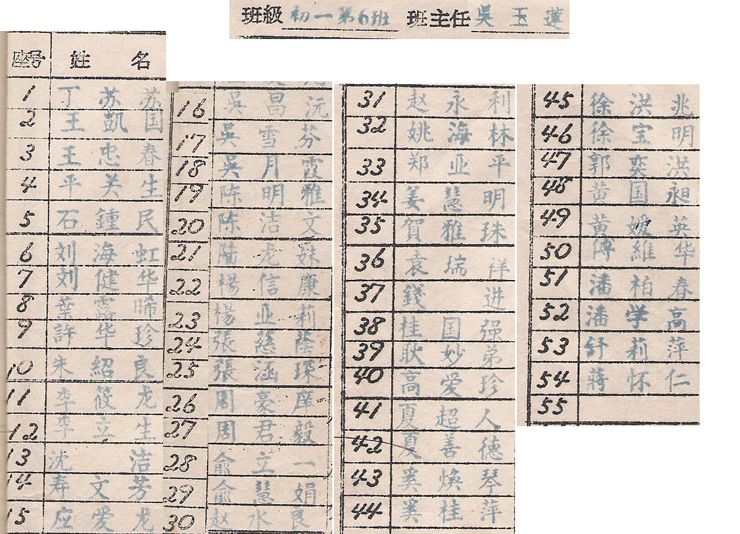 班級 初一第6班 班主任 吳玉蓮
座号 姓 名
1 丁苏苏
2 王凱国
3 王忠春
4 平关生
5 石鍾民
6 刘海虹
7 刘健华
8 葉露晞
9 許华珍
10 朱紹良
11 李筱龙
12 李立生
13 沈 洁
14 寿文芳
15 应爱龙
16 吳昌沅
17 吳雪芬
18 吳月霞
19 陈明雅
20 陈洁文
21 陆龙妹
22 楊信康
23 楊亚莉
24 張慈蔭
25 張涵琛
26 周豪
27 周君毅
28 俞立一
29 俞慧娟
30 赵水良
31 赵永利
32 姚海林
33 郑亚平
34 姜慧明
35 賀雅珠
36 袁瑞祥
37 錢 进
38 桂国强
39 耿妙弟
40 高爱珍
41 夏超人
42 夏善德
43 奚煥琴
44 奚桂萍
45 徐洪兆
46 徐宝明
47 郭奕洪
48 黄国昶
49 黄媛英
50 傅維华
51 潘柏春
52 潘学高
53 舒莉萍
54 蔣怀仁
55